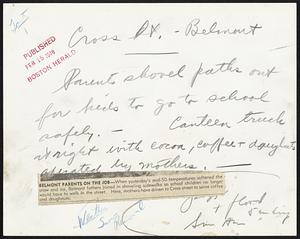 PUBLISHED
FEB 15 1948
BOSTON HERALD
Cross St. - Belmont
Parents shovel paths out
for kids to go to school
safely. - Canteen trucks
at right with cocoa, coffee + doughnuts
operated by mothers.
BELMONT PARENTS ON THE JOB—When yesterday's mid-50 temperatures softened the
snow and ice, Belmont fathers joined in shoveling sidewalks so school children no longer
would have to walk in the street. Here, mothers have driven to Cross street to serve coffee
and doughnuts.
Weather
flood